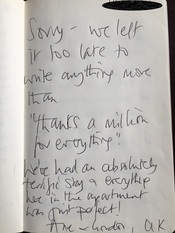 Sorry - we left
it too late to
write anything more
than
"thanks a million
for everything"
We've had an absolutely
terrific stay & everything
here in the apartment
was just perfect!
London, UK